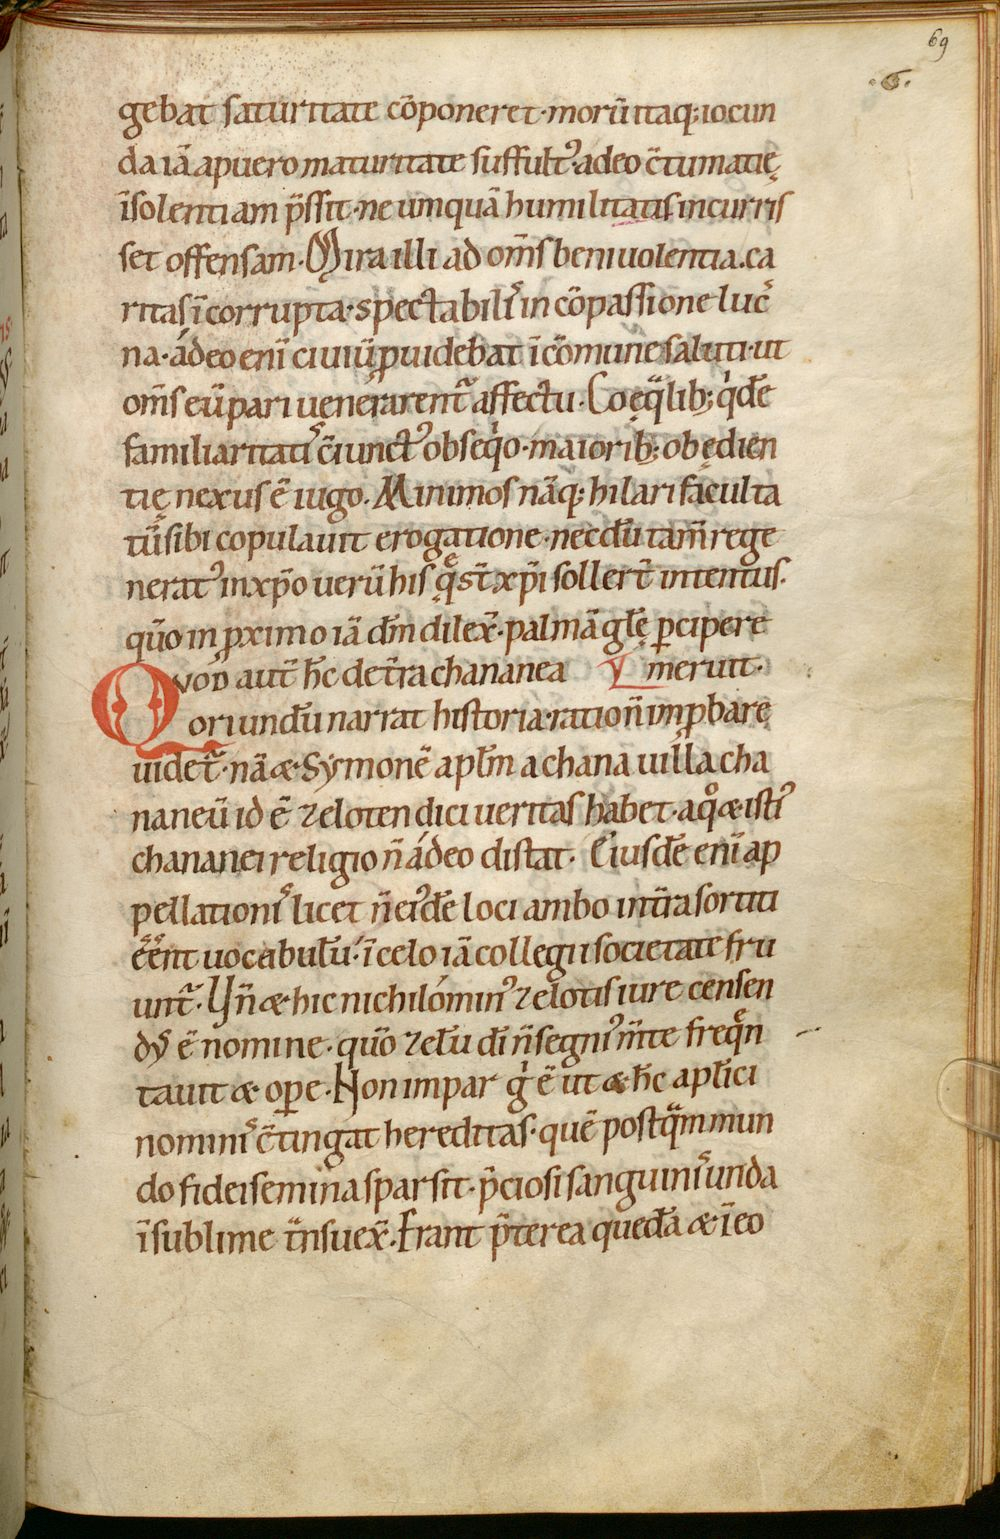 69
.6.
gebat saturitate cōponeret·morū itaq; iocun
da iā a puero maturitate suffult᾽·adeo c̄tumatię
īsolentiam p̄ssit·ne umquā humilitatis incurris
set offensam·Mira illi ad om̄s beniuolentia.ca
ritas īcorrupta·spectabilis in cōpassione luc̄
na·ádeo enī ciuiū ꝓuidebat ī cōmune saluti·ut
om̄s eū pari uenerarent᷑ affectu·Coęq̄lib; qͥdē
familiaritatis c̄iunct᾽ obseqͥo·maiorib; obędien
tię nexus ē iugo.Minimos nāq; hilari faculta
tū sibi copulauit erogatione·necdū tam̄ rege
nerat᾽ in xp̄o uerū his q̄ st̄ xp̄i sollert̄ intentus·
quō in ꝓximo iā dm̄ dilex̄·palmā glę̄ ꝑcipere
meruit·
Quod aut̄ h̄c de t̄ra chananea
oriundū narrat historia·ration̄ imꝓbare
uidet᷑·nā & Symonē apl̄m a chana uilla cha
naneū id ē zeloten dici ueritas habet·a qͦ & isti᾽
chananei religio n̄ ádeo distat· Eiusdē enī ap
pellationis licet n̄ ei᾽dē loci ambo int̄ra sortiti
ēēnt uocabulū·ī celo iā collegii societate fru
unt᷑·Un̄ & hic nichilómin᾽ zelotis iure censen
dus ē nomine·quō zelū dī n̄ segni᾽ m̄te freqͣn
tauit & oꝑe·Non impar gͥ ē ut & h̄c apl̄ici
nominis c̄tingat hereditas·quē postqͣm mun
do fidei semina sparsit·p̄ciosi sanguinis unda
ī sublime t̄nsuex̄.Erant p̄terea quedā & ī eo